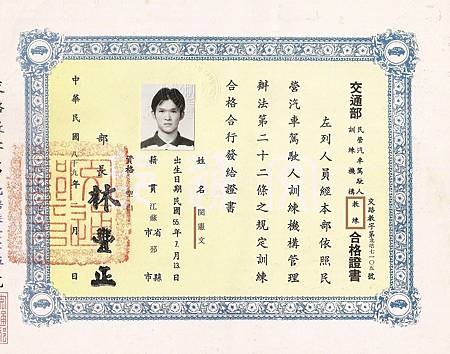 交通部
民營汽車駕駛人
訓練機構
教練
合格證書
交路教字第 七一〇五號
左列人員經本部依照民
營汽車駕駛人訓練機構管理
辦法第二十二條之規定訓練
合格合行發給證書
姓名 閔憲文
出生日期 民國55年7月13日
籍貫 江蘇省 縣
市 邳 市
資格
部長 林豐正
中華民國八十九年 月 日